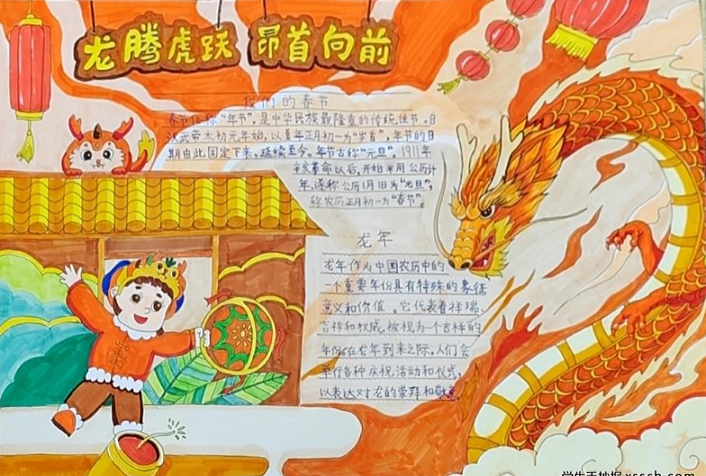 龙腾虎跃 昂首向前
我们的春节
春节俗称“年节”,是中华民族最隆重的传统佳节。自
汉武帝太初元年始,以夏年正月初一为“岁首”,年节的日
期由此固定下来,延续至今。年节古称“元旦”。1911年
辛亥革命以后,开始采用公历计
年,遂称公历1月1日为“元旦”,
称农历正月初一为“春节”。
龙年
龙年作为中国农历中的
一个重要年份具有特殊的象征
意义和价值。它代表着祥瑞、
吉祥和权威,被视为一个吉祥的
年份。在龙年到来之际,人们会
举行各种庆祝活动和仪式,
以表达对龙的崇拜和敬意。
学生手抄报:xsscb.com